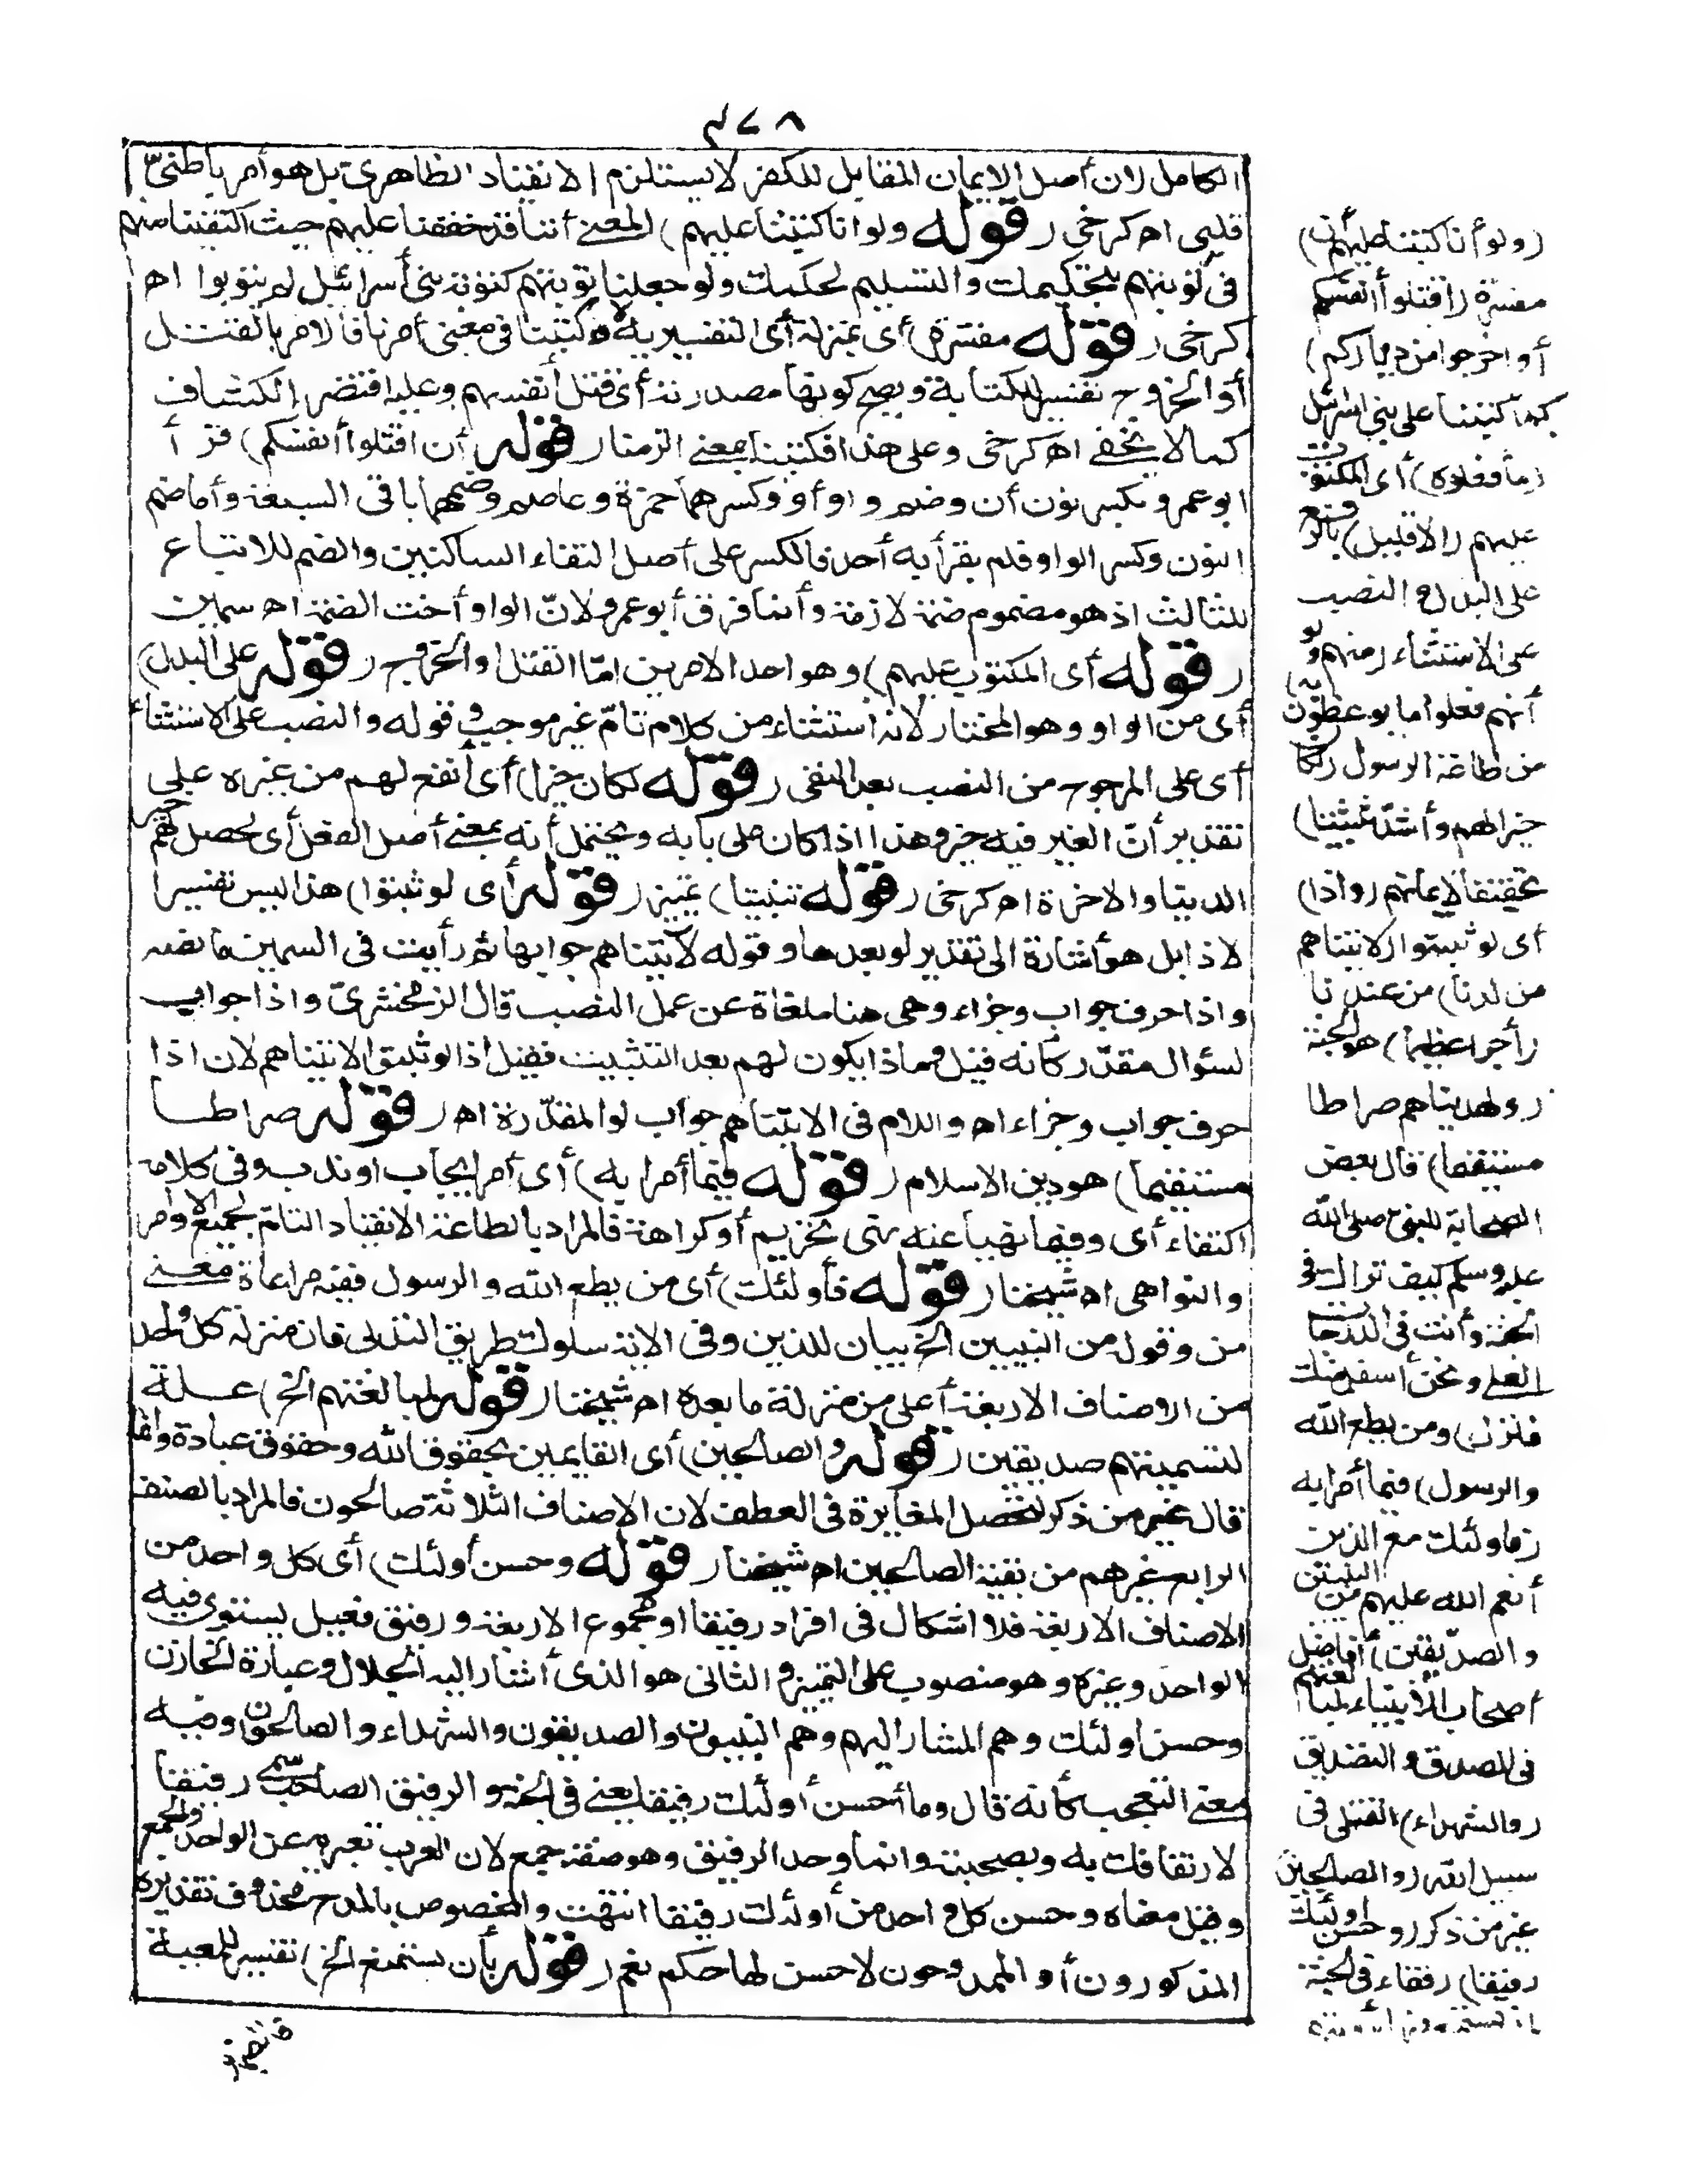 ٤٧٨
الكامل لان أصل الايمان المقابل للكفر لا يستلزم الانقياد الظاهرى بل هو أمر باطنىّ
قلبى اه كرخى ( قوله ولو انا كتبنا عليهم ) المعنى أننا قد خففنا عليهم حيث اكتفينا منهم
فى توبتهم بتحكيمك والتسليم لحكمك ولو جعلنا توبتهم كتوبة بنى أسرائيل لم يتوبوا اه
كرخى ( قوله مفسرة ) أى بمنزلة أى التفسيرية لان كتبنا فى معنى أمرنا فالامر بالقتل
أو الخروج تفسير للكتابة ويصح كونها مصدرية أى قتل أنفسهم وعليه اقتصر الكشاف
كما لا يخفى اه كرخى وعلى هذا فكتبنا بمعنى الزمنا ( قوله أن اقتلوا أنفسكم ) قرأ
ابوعمرو بكسر نون أن وضم واو أو وكسرهما حمزة وعاصم وضمهما باقى السبعة وأما ضم
النون وكسر الواو فلم يقرأ به أحد فالكسر على أصل التقاء الساكنين والضم للاتباع
للثالث اذ هو مضموم ضمة لازمة وأنما فرق أبو عمرو لانّ الواو أخت الضمة اه سمين
( قوله أى المكتوب عليهم ) وهو احد الامرين امّا القتل او الخروج ( قوله على البدل )
أى من الواو وهو المختار لانه استثناء من كلام تامّ غير موجب وقوله والنصب على الاستثناء
أى على المرجوح من النصب بعد النفى ( قوله لكان خيرا ) أى أنفع لهم من غيره على
تقدير أنّ الغير فيه خير وهذا اذا كان على بابه ويحتمل أنه بمعنى أصل الفعل أى لحصل لهم خير
الدنيا والاخرة اه كرخى ( قوله تثبيتا ) تمييز ( قوله أى لو ثبتوا ) هذا ليس تفسيرا
لاذا بل هو أشارة الى تقدير لو بعدها وقوله لآتيناهم جوابها ثم رأيت فى السمين ما نصه
واذا حرف جواب وجزاء وهى هنا ملغاة عن عمل النصب قال الزمخشرىّ واذا جواب
لسؤال مقدّر كأنه قيل وماذا يكون لهم بعد التثبيت فقيل اذا لو ثبتوا لاتيناهم لان اذا
حرف جواب وجزاء اه واللام فى لاتيناهم جواب لو المقدّرة اه ( قوله صراطا
مستقيما ) هو دين الاسلام ( قوله فيما أمرا به ) أى أمر ايجاب او ندب وفى كلامه
اكتفاء أى وفيما نهيا عنه نهى تحريم أو كراهة فالمراد بالطاعة الانقياد التامّ لجميع الاوامر
والنواهى اه شيخنا ( قوله فأولئك ) أى من يطع الله والرسول ففيه مراعاة معنى
من وقوله من النبيين الخ بيان للذين وفى الاية سلوك طريق التدلى فان منزلة كل واحد
من الاصناف الاربعة أعلى من منزلة ما بعده اه شيخنا ( قوله لمبالغتهم الخ ) علة
لتسميتهم صديقين ( قوله والصالحين ) أى القايمين بحقوق الله وحقوق عبادة وانما
قال غير من ذكر لتحصل المغايرة فى العطف لان الاصناف الثلاثة صالحون فالمراد بالصنف
الرابع غيرهم من بقية الصالحين اه شيخنا ( قوله وحسن أولئك ) أى كل واحد من
الاصناف الاربعة فلا اشكال فى افراد رفيقا او مجموع الاربعة ورفيق فعيل يستوى فيه
الواحد وغيره وهو منصوب على التمييز والثانى هو الذى أشار اليه الجلال وعبارة الخازن
وحسن اولئك وهم المشار اليهم وهم النبيون والصديقون والشهداء والصالحون وفيه
معنى التعجب كأنه قال وما أحسن أولئك رفيقا يعنى فى الجنة والرفيق الصاحب سمى رفيقا
لارتفاقك به وبصحبته وانما وحد الرفيق وهو صفة جمع لان العرب تعبر به عن الواحد والجمع
وقيل معناه وحسن كل واحد من أولئك رفيقا انتهت والمخصوص بالمدح محذوف تقديره
المذكورون أو الممدوحون لاحسن لها حكم نعم ( قوله بأن يستمتع الخ ) تفسير للمعية
( ولو أنا كتبنا عليهم أن )
مفسرة ( اقتلوا أنفسكم
أو اخرجوا من دياركم )
كما كتبنا على بنى اسرائيل
( ما فعلوه ) أى المكتوب
عليهم ( الا قليل ) بالرفع
على البدل والنصب
على الاستثناء ( منهم ولو
أنهم فعلوا ما يوعظون به )
من طاعة الرسول ( لكان
خيرا لهم وأشدّ تثبيتا )
تحقيقا لايمانهم ( واذا )
أى لو ثبتوا ( لاتيناهم
من لدنا ) من عندنا
( أجرا عظيما ) هو الجنة
( ولهديناهم صراطا
مستقيما ) قال بعض
الصحابة للنبى صلى الله
عليه وسلم كيف نراك فى
الجنة وأنت فى الدرجات
العلى ونحن أسفل منك
فنزل ( ومن يطع الله
والرسول ) فيما أمرا به
( فاولئك مع الذين
أنعم الله عليهم من النبيين
والصدّيقين ) أفاضل
أصحاب الانبياء لمبالغتهم
فى الصدق والتصديق
( والشهداء ) القتلى فى
سبيل الله ( والصالحين )
غير من ذكر ( وحسن اولئك
رفيقا ) رفقاء فى الجنة